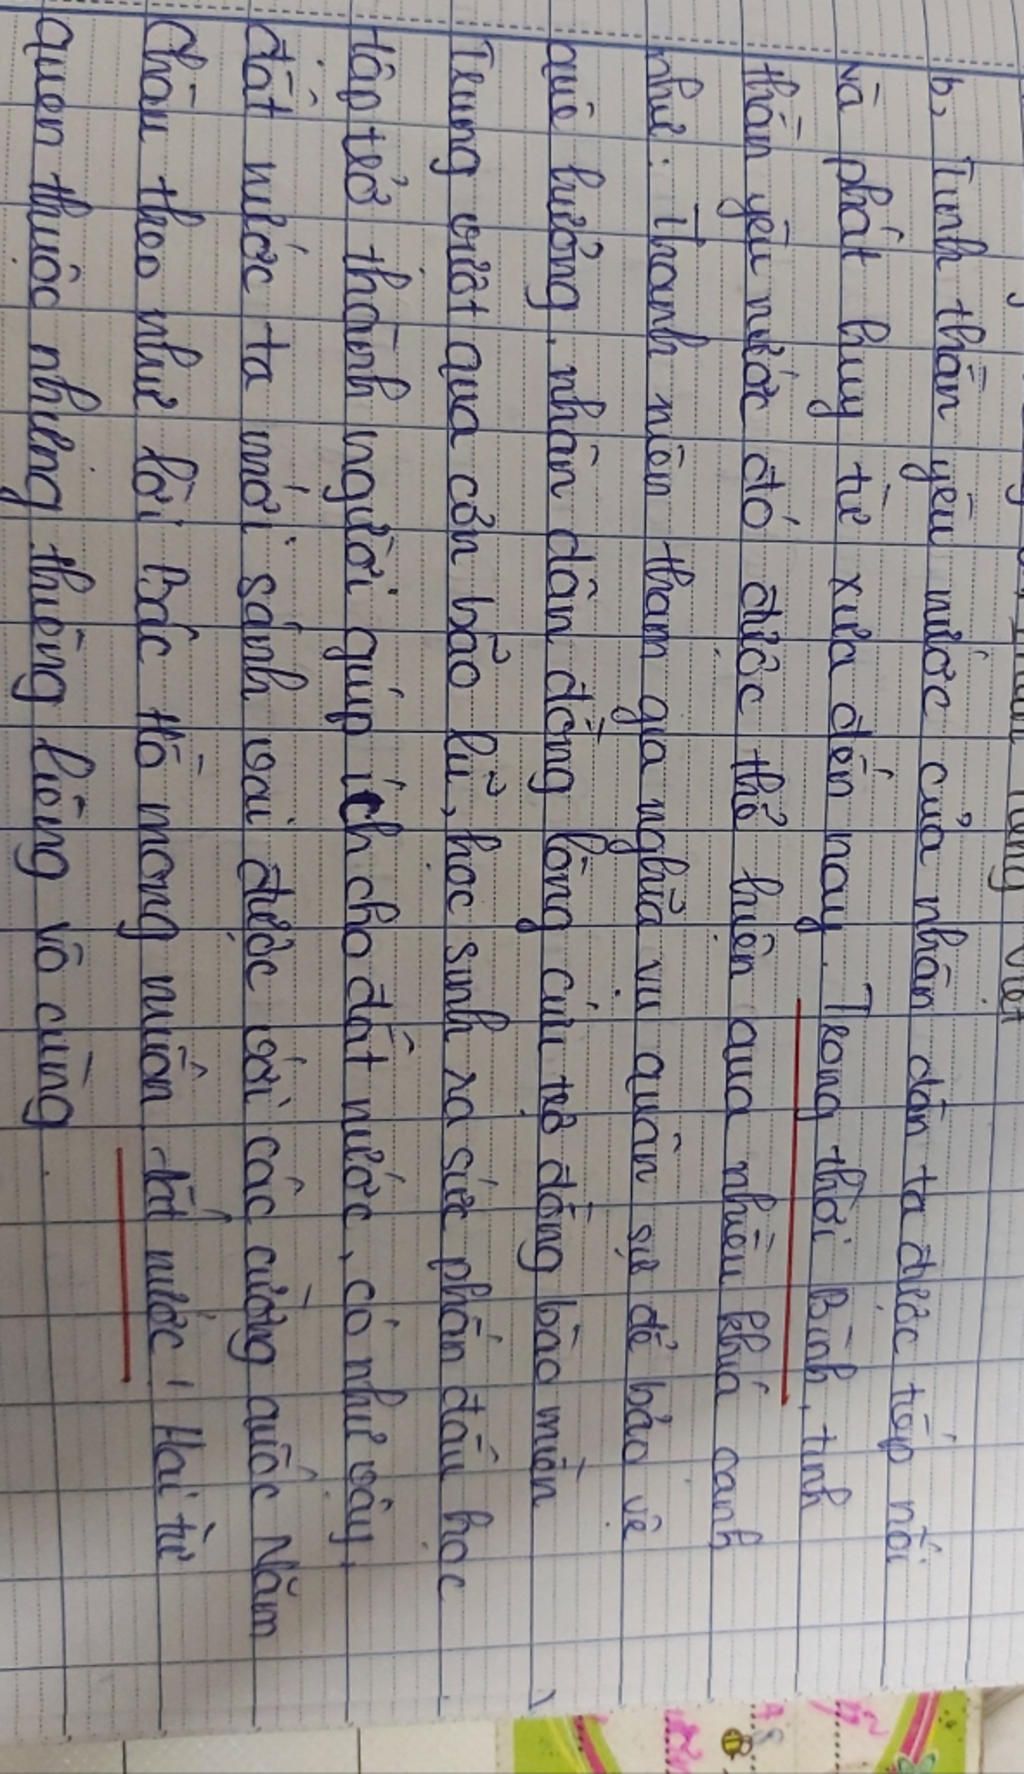 b, Tinh thần yêu nước của nhân dân ta được tiếp nối
và phát huy từ xưa đến nay. Trong thời Bình, tinh
thần yêu nước đó được thể hiện qua nhiều khía cạnh
như: Thanh niên tham gia nghĩa vụ quân sự để bảo vệ
quê hương, nhân dân đồng lòng cứu trợ đồng bào miền
Trung vượt qua cơn bảo lũ, học sinh ra sức phấn đấu học
tập trở thành người giúp ích cho đất nước, có như vậy,
đất nước ta mới sánh vai được với các cường quốc Năm
Châu theo như lời Bác Hồ mong muốn. đất nước! Hai từ
quen thuộc nhưng thiêng liêng vô cùng.